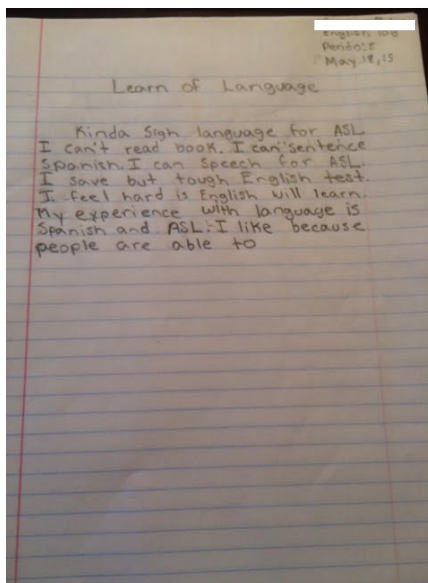 English 10B
Period:8
May.18,15
Learn of Language
Kinda Sigh language for ASL
I can't read book. I can sentence
Spanish. I can speech for ASL.
I save but tough English test.
I feel hard is English will learn.
My experience with language is
Spanish and ASL. I like because
people are able to